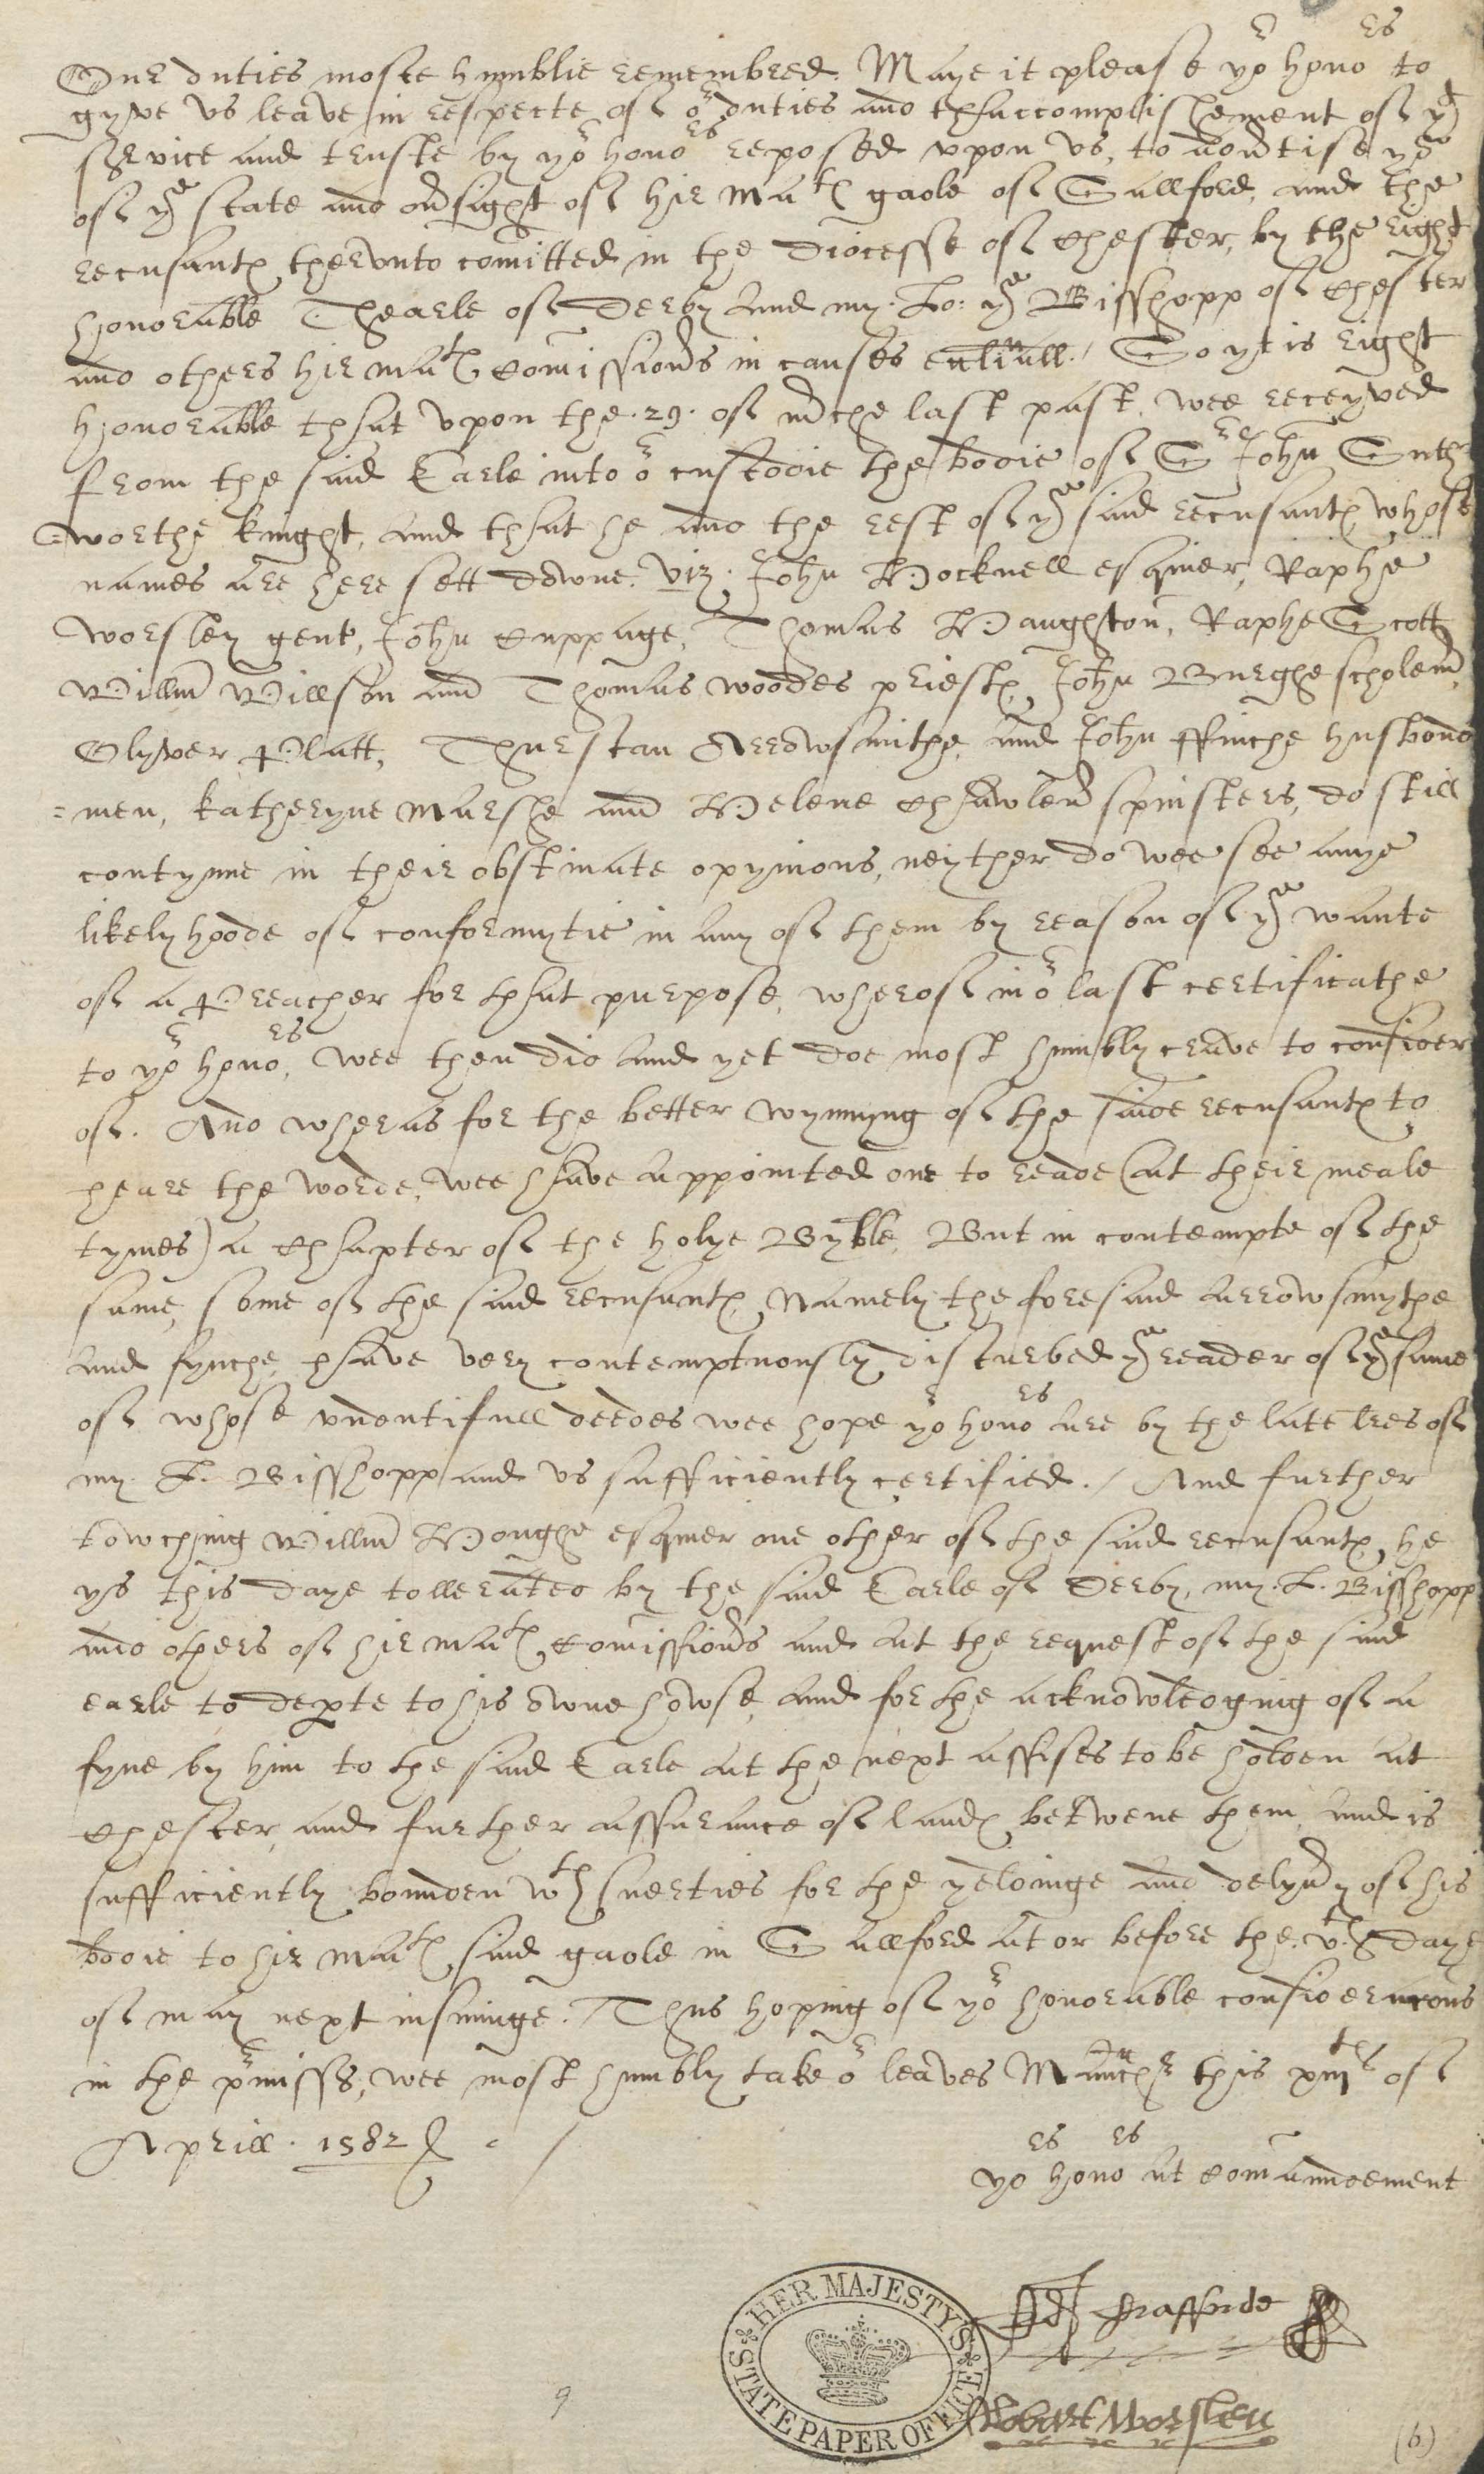 Our duties moste humblie remembred. Maye it please yor honores to
gyve vs leave in respecte of or duties and thaccomplishement of ye
service and truste by yor honores reposed vpon vs, to advertise yow
of ye state and oversight of hir Maties gaole of Sallford, and the
recusantes thervnto comitted in the diocesse of Chester, by the right
honorable Thearle of Derby and my Lo: ye Bisshopp of Chester
and others hir Maties Comissioners in causes ecclicall./ So yt is right
honorable that vpon the .29. of Marche last past, wee receyved
from the said Earle into or custodie the bodie of Sr John Southe
=worthe knight, and that he and the rest of ye said recusantes, whose
names are here sett downe. viz. John Hocknell esquier, Raphe
Worsley gent, John Cuppage, Thomas Haughton, Raphe Scott
Willm Willson and Thomas Woodes priestes, John Burghe scholemr,
Olyver Platt, Thurstan Arrowsmithe, and John ffinche husbond
=men, Katheryne Marshe and Helene Chawler spinsters, do still
contynue in their obstinate opynions, neyther do wee see anye
likelyhoode of conformytie in any of them by reason of ye wante
of a Preacher for that purpose, wherof in or last certificathe
to yor honores, wee then did and yet doe most humbly crave to consider
of. And wheras for the better wynnyng of the saide recusantes to
heare the worde, wee have appointed one to reade (at their meale
tymes) a Chapter of the holye Byble, But in contempte of the
same, some of the said recusantes, Namely the foresaid arrowsmythe
and fynche, have very contemptuously disturbed ye reader of ye same
of whose vndutifull deedes wee hope yor honores are by the late lres of
my L. Bisshopp and vs sufficiently certified./ And further
towching Willm Houghe esquier one other of the said recusantes, he
ys this daye tollerated by the said Earle of Derby, my L. Bisshopp
and others of hir Maties Comissioners and at the request of the said
earle to depte to his owne howse, and for the acknowledging of a
fyne by him to the said Earle at the next assises to be holden at
Chester, and further assurance of landes betwene them, and is
sufficiently bounden wth suerties for the yeldinge and delyvery of his
bodie to hir Maties said gaole in Sallford at or before the .vth. daye
of may next insuinge. Thus hoping of yor honorable consideracons
in the pmisses, wee most humbly take or leaves Manchr this xiijth of
Aprill . 1582
yor honores at comaundement
Ed Trafforde
Robart Worsley
HER MAJESTY'S STATE PAPER OFFICE
9
(6)